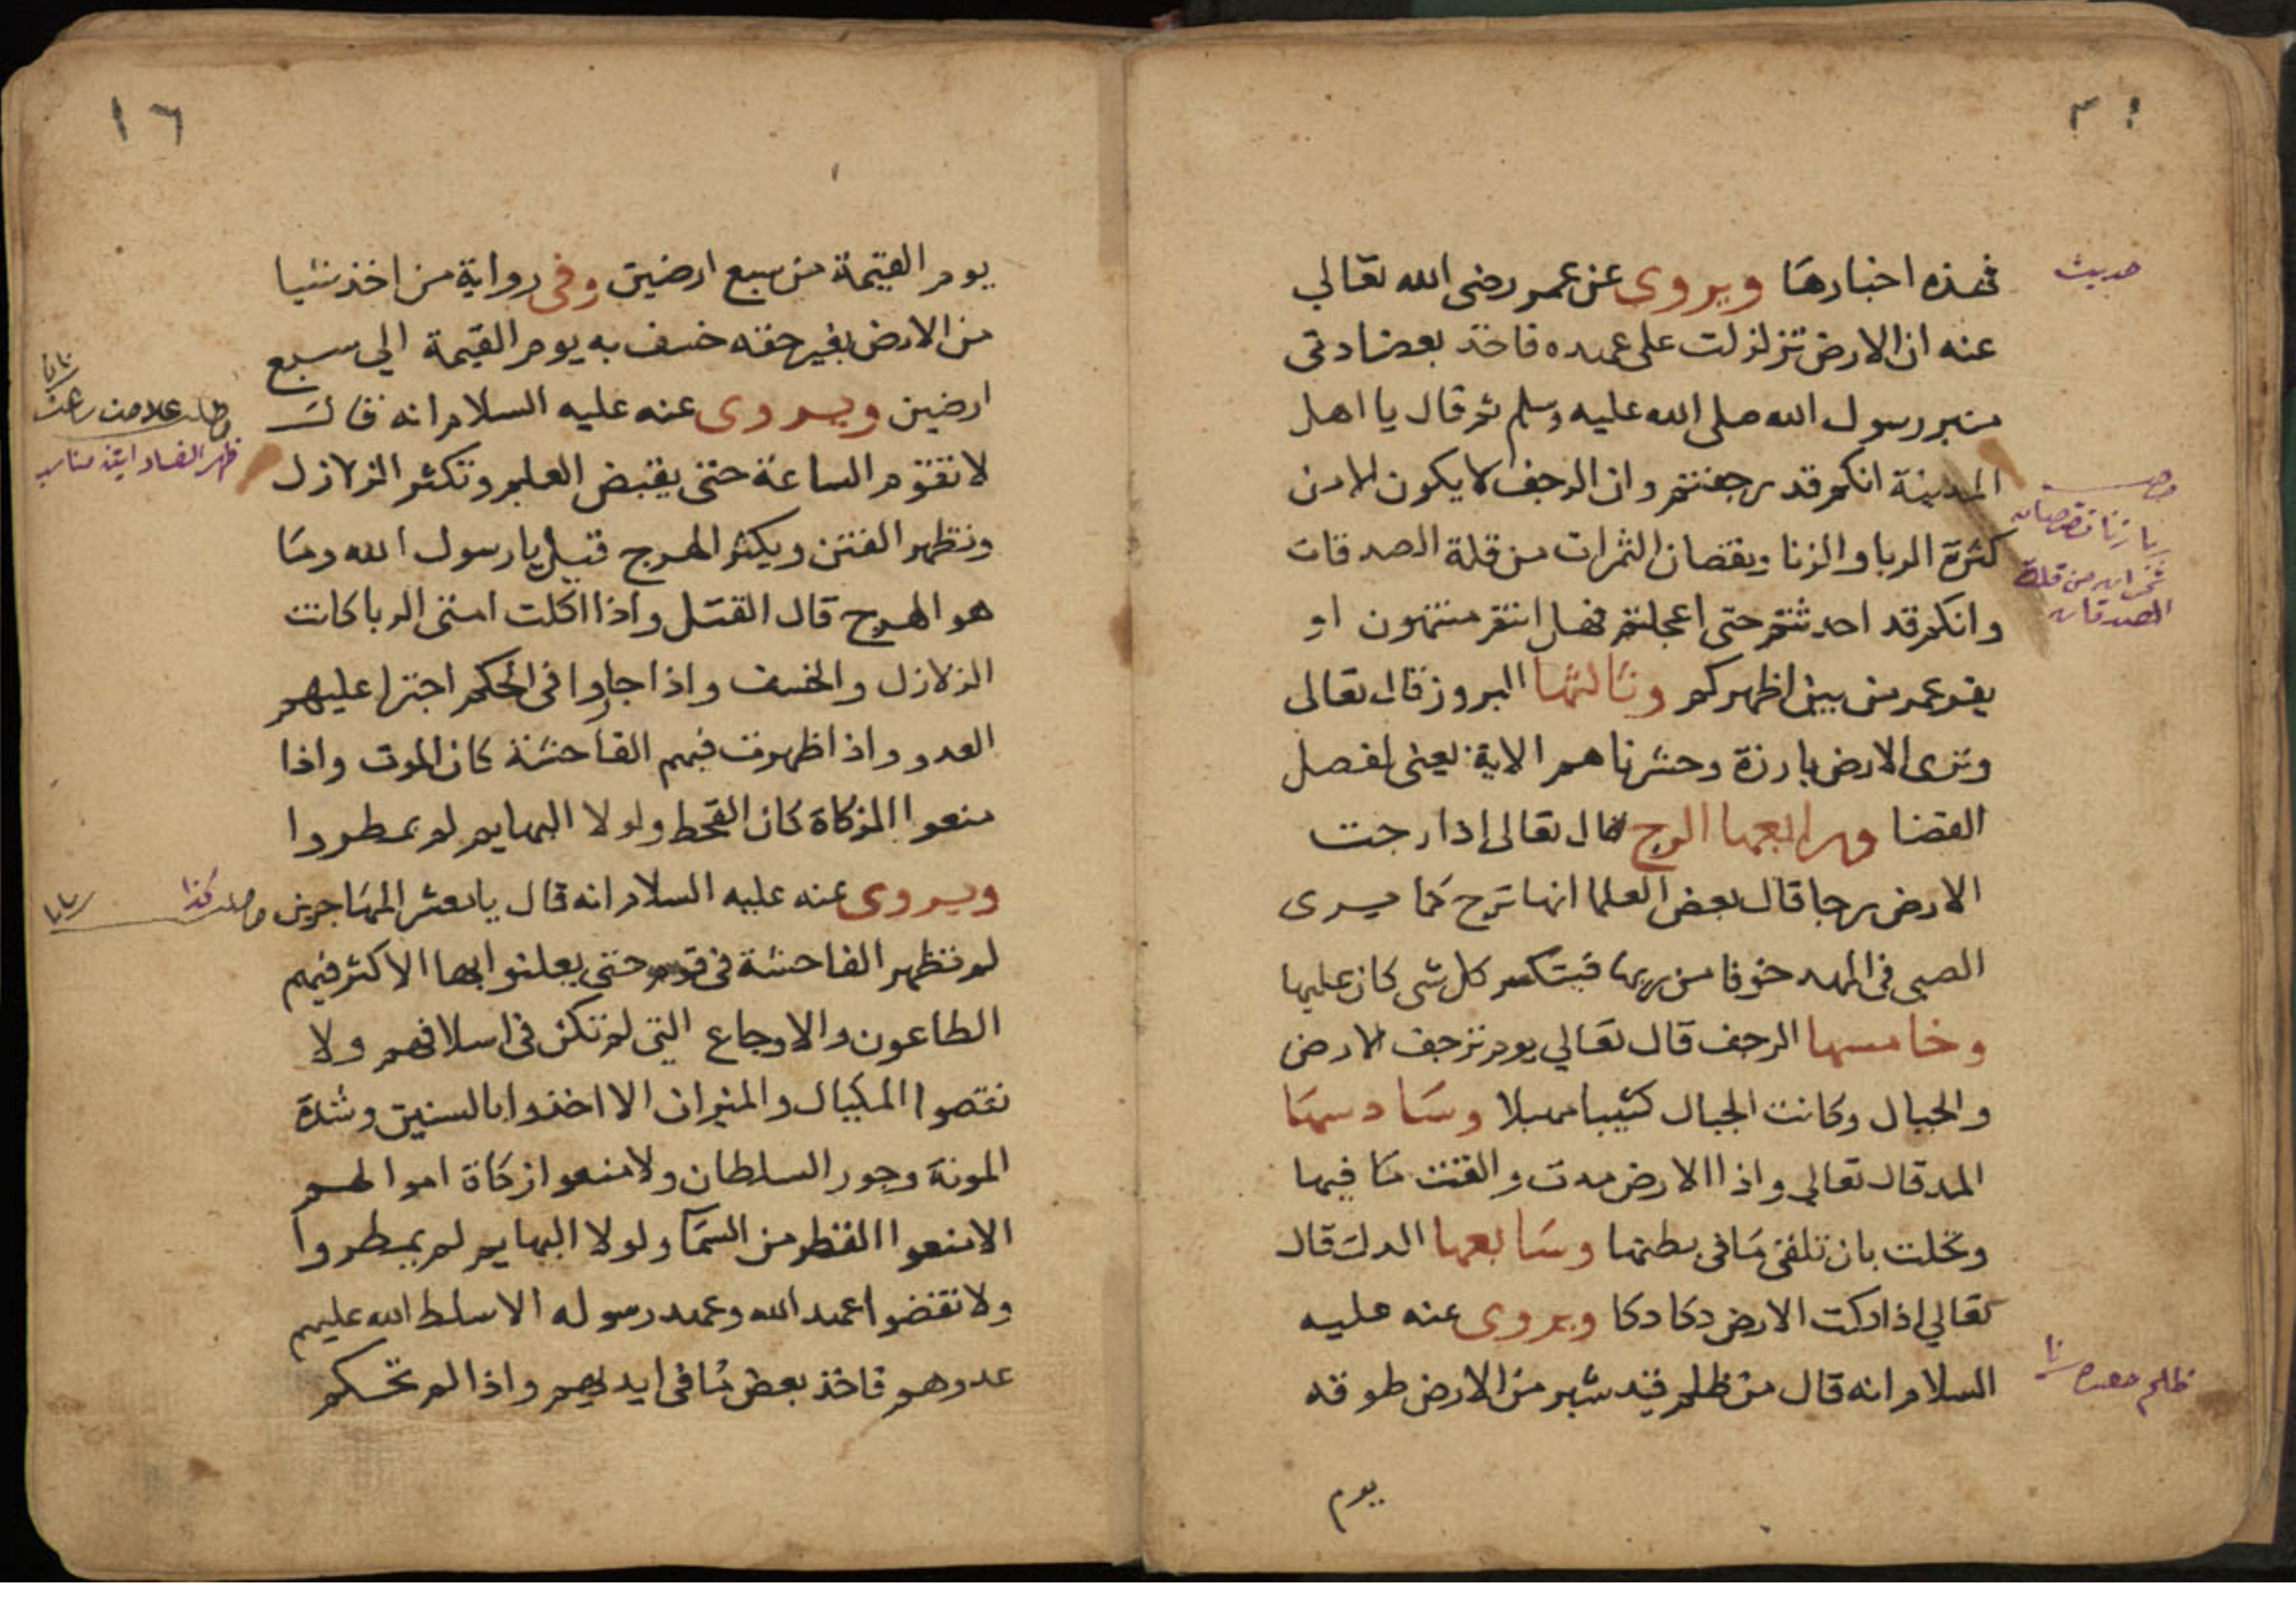 فهذه اخبارها ويروى عن عمر رضى الله تعالي
عنه ان الارض تزلزلت على عهده فاخذ بعضادتى
منبر رسول الله صلى الله عليه وسلم ثم قال يا اهل
المدينة انكم قد رجفتم وان الرجف لا يكون الا من
كثرة الربا والزنا ونقصان الثمرات من قلة الصدقات
وانكم قد احدثتم حتى اعجلتم فهل انتم منتهون او
يفر عمر من بين اظهركم وثالثها البروز قال تعالى
وترى الارض بارزة وحشرناهم الاية يعنى لفصل
القضا ورابعها الرج قال تعالى اذا رجت
الارض رجا قال بعض العلما انها ترج كما يرى
الصبى فى المهد خوفا من ربها فيتكسر كل شى كان عليها
وخامسها الرجف قال تعالي يوم ترجف الارض
والجبال وكانت الجبال كثيبا مهيلا وسادسها
المد قال تعالى واذا الارض مدت والقت ما فيها
وتخلت بان تلقى ما فى بطنها وسابعها الدك قال
تعالي اذا دكت الارض دكا دكا ويروى عنه عليه
السلام انه قال من ظلم قيد شبر من الارض طوقه
يوم
حديث
ربا زنا نقصان
من قلة
الصدقات
ظلم
١٦
يوم القيمة من سبع ارضين وفى رواية من اخذ شيا
من الارض بغير حقه خسف به يوم القيمة الى سبع
ارضين ويروى عنه عليه السلام انه قال
لا تقوم الساعة حتى يقبض العلم وتكثر الزلازل
وتظهر الفتن ويكثر الهرج قيل يا رسول الله وما
هو الهرج قال القتل واذا اكلت امتى الربا كانت
الزلازل والخسف واذا جاروا فى الحكم اجترا عليهم
العدو واذا ظهرت فيهم الفاحشة كان الموت واذا
منعوا الزكاة كان القحط ولولا البهايم لم يمطروا
ويروى عنه عليه السلام انه قال يا معشر المهاجرين
لم تظهر الفاحشة فى قوم حتى يعلنوا بها الا كثر فيهم
الطاعون والاوجاع التى لم تكن فى اسلافهم ولا
نقصوا المكيال والميزان الا اخذوا بالسنين وشدة
المونة وجور السلطان ولا منعوا زكاة اموالهم
الا منعوا القطر من السمآ ولولا البهايم لم يمطروا
ولا نقضوا عهد الله وعهد رسوله الا سلط الله عليهم
عدوهم فاخذ بعض ما فى ايديهم واذا لم تحكم
علامت
ظهر الفساد
كذا